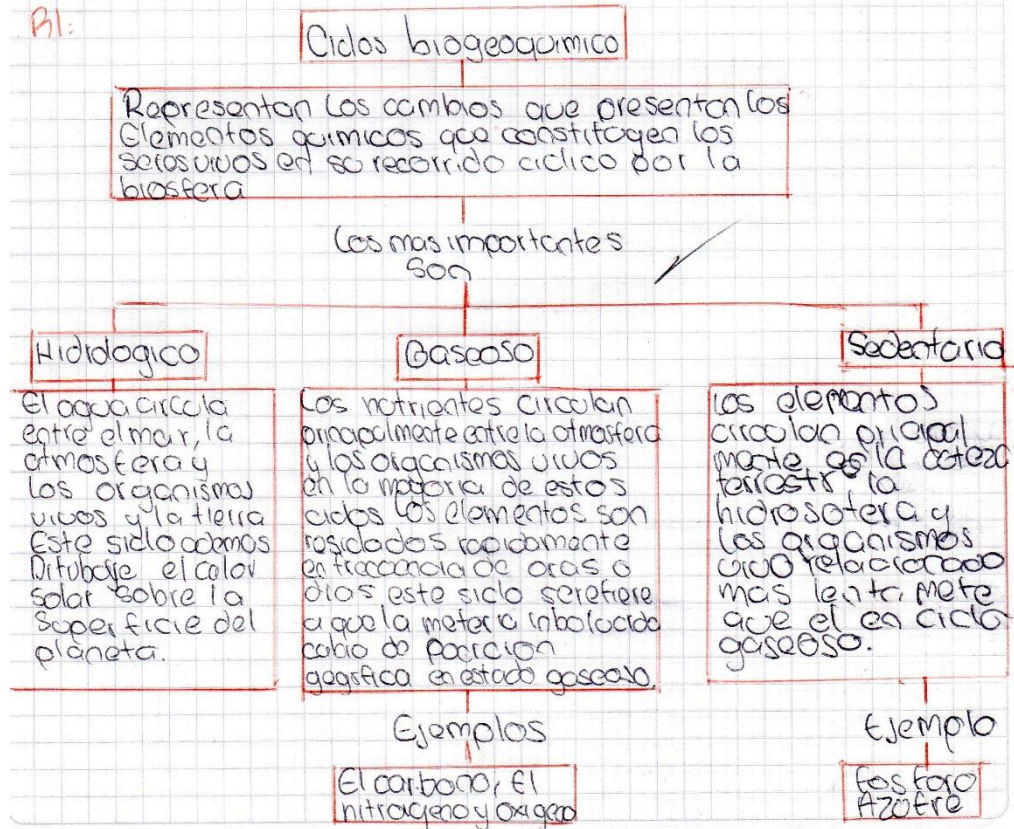 B1:
Ciclos biogeoquimico
Representan los cambios que presentan los
Elementos quimicos que constitugen los
seres vivos en su recorrido ciclico por la
biosfera
Los mas importantes
son
Hidrologico
El agua circula
entre el mar, la
atmosfera y
los organismos
vivos y la tierra
Este siclo ademas
Ditubolle el calor
solar sobre la
superficie del
planeta.
Gaseoso
Los nutrientes circulan
principalmente entre la atmosfera
y los organismos vivos
en la mayoria de estos
ciclos los elementos son
resiclados rapidamente
en frecuencia de oras o
dias este siclo serefiere
a que la meteria inbolucida
cabio de pocicion
gegrfica en estado gaseaso.
Sedentario
los elementos
circulan pricipal
mente es la coteza
terrestr la
hidrosotera y
los organismos
vivo relacionado
mas lenta mete
que el en ciclo
gaseoso.
Ejemplos
El carbono, El
nitrogeno y oxigeno
Ejemplo
fosforo
Azofre